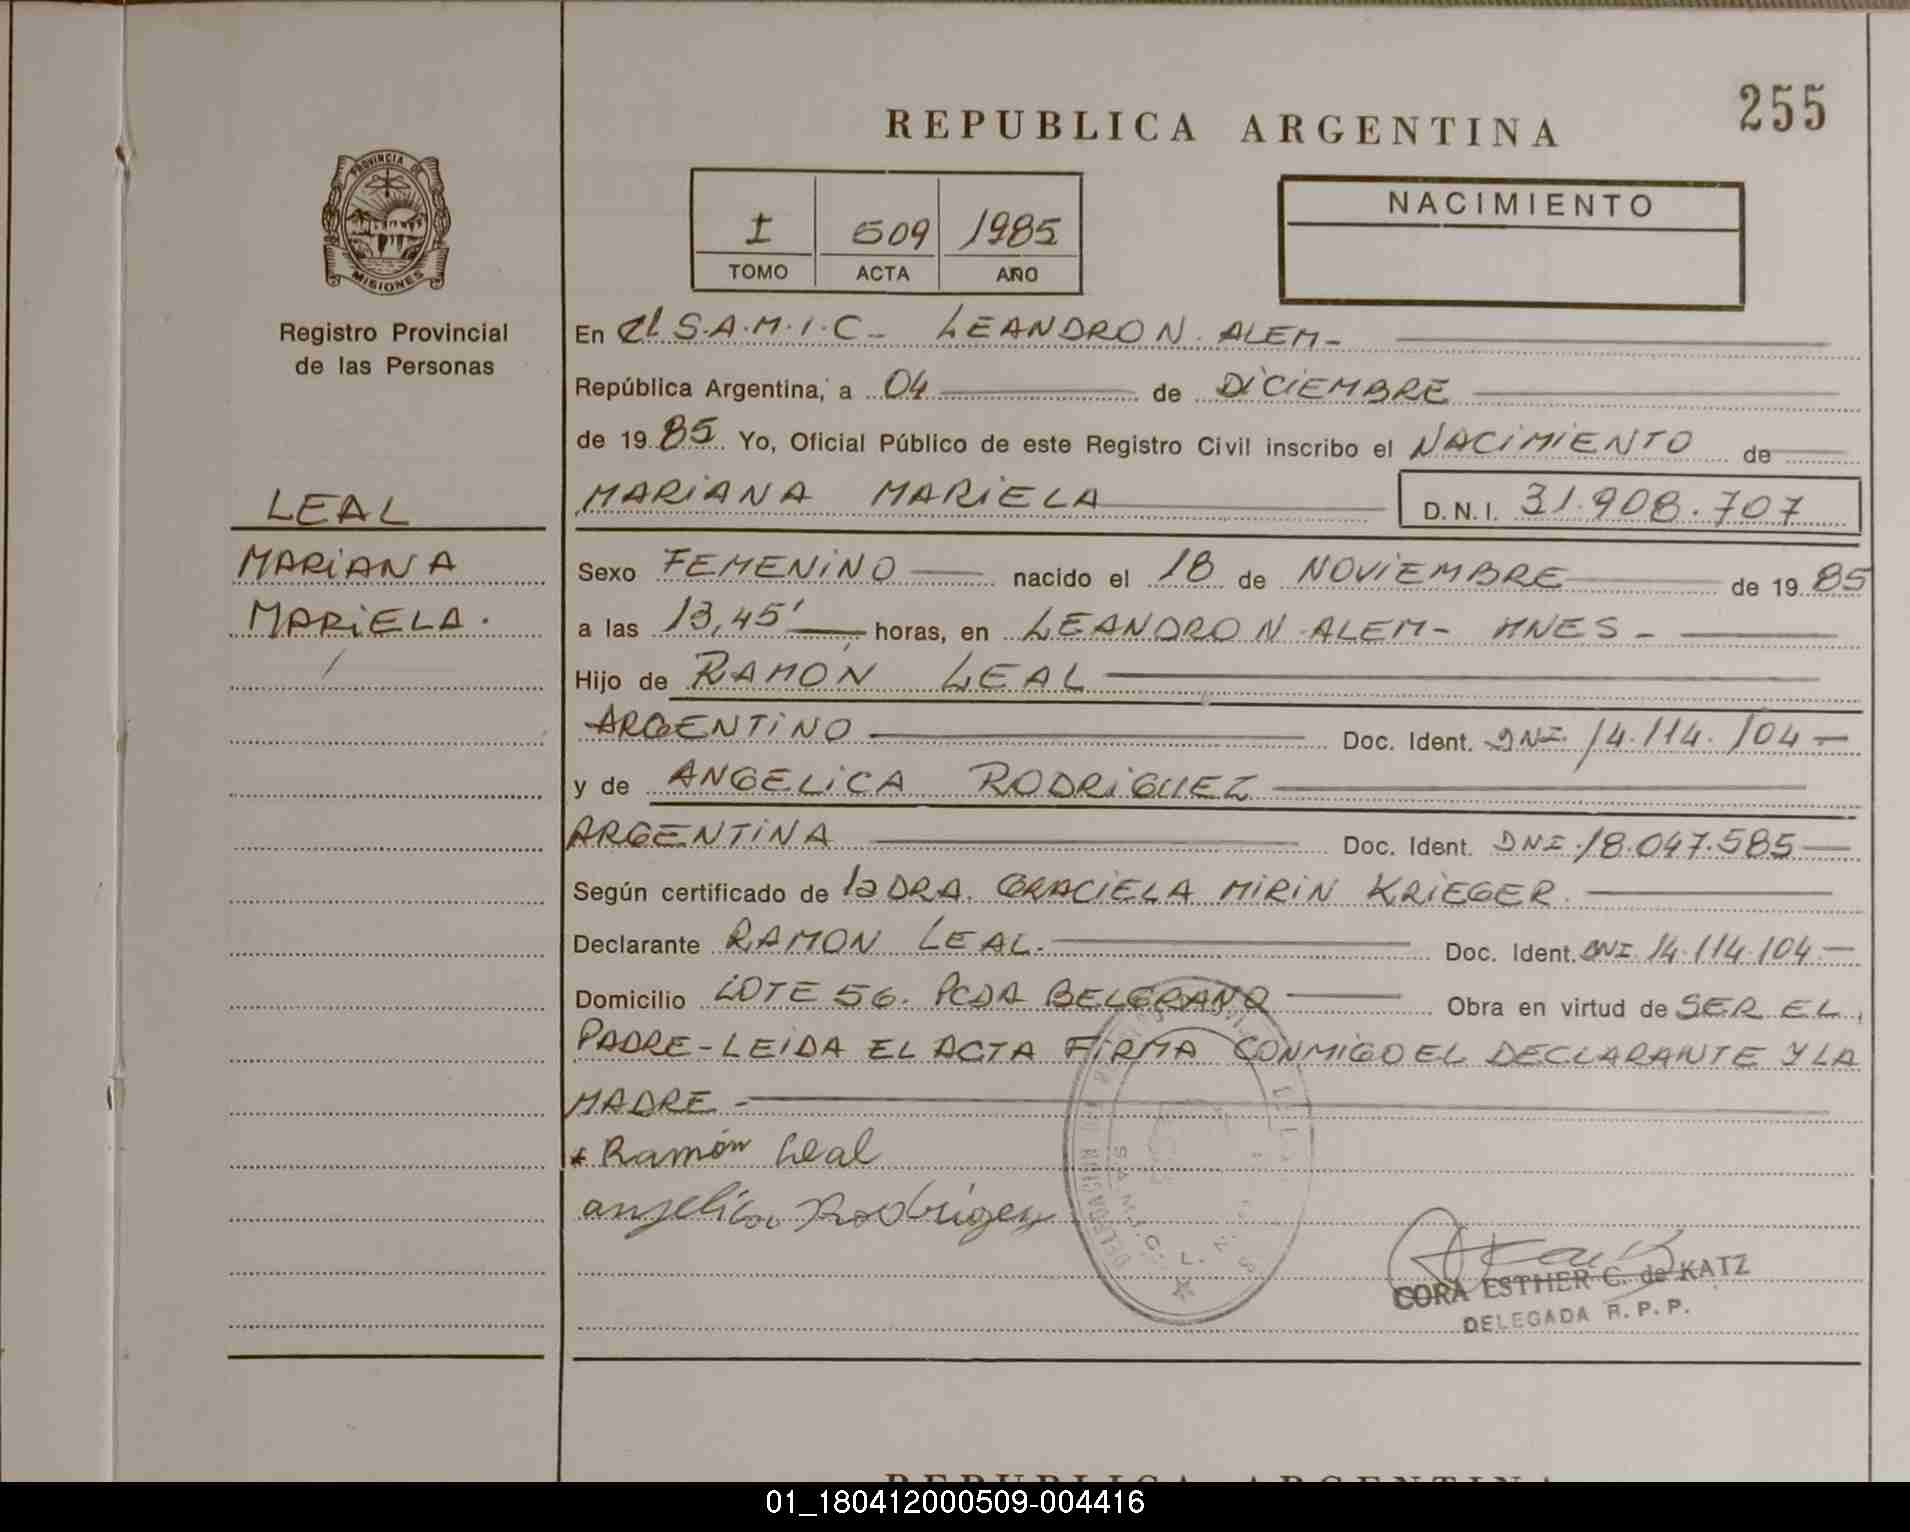 255
REPUBLICA ARGENTINA
PROVINCIA DE
MISIONES
Registro Provincial
de las Personas
I 509 1985
TOMO ACTA AÑO
NACIMIENTO
En el S.A.M.I.C- LEANDRO N. ALEM-
República Argentina, a 04 de DICIEMBRE
de 1985 Yo, Oficial Público de este Registro Civil inscribo el NACIMIENTO de
MARIANA MARIELA D.N.I. 31.908.707
LEAL
MARIANA
MARIELA.
Sexo FEMENINO nacido el 18 de NOVIEMBRE de 1985
a las 13,45' horas, en LEANDRO N. ALEM- MNES-
Hijo de RAMÓN LEAL
ARGENTINO Doc. Ident. DNI. 14.114.104-
y de ANGELICA RODRIGUEZ
ARGENTINA Doc. Ident. DNI.18.047.585
Según certificado de la DRA. GRACIELA MIRIN KRIEGER.
Declarante RAMON LEAL. Doc. Ident. DNI 14.114.104-
Domicilio LOTE 56. PCDA BELGRANO Obra en virtud de SER EL
PADRE-LEIDA EL ACTA FIRMA CONMIGO EL DECLARANTE Y LA
MADRE-
Ramón Leal
angelica Rodriguez
S.A.M.I.C. L.N.
CORA ESTHER C. de KATZ
DELEGADA R.P.P.
REPUBLICA ARGENTINA
01_180412000509-004416